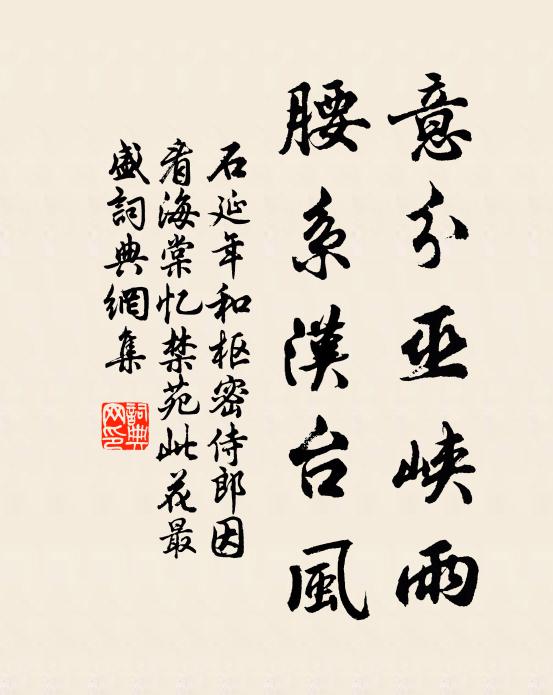 意分巫峡雨
腰系漢台風
石延年和枢密侍郎因
看海棠忆禁苑此花最
盛詞典網集
詞典
网印